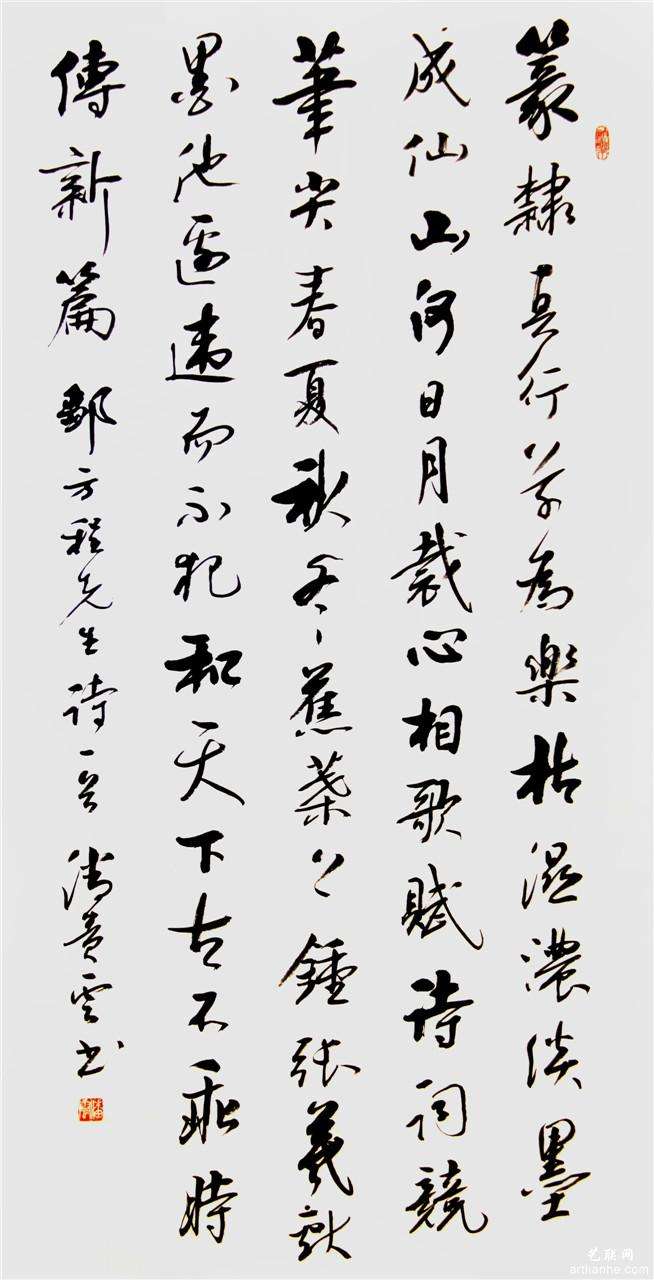 篆隸真行草為樂枯濕濃淡墨
成仙山河日月裁心相歌賦詩詞競
筆尖春夏秋冬蕉葉上鍾張羲獻
墨池邊違而不犯和天下古不乖時
傳新篇 方程先生詩一首 書
艺联网
artlianhe.com